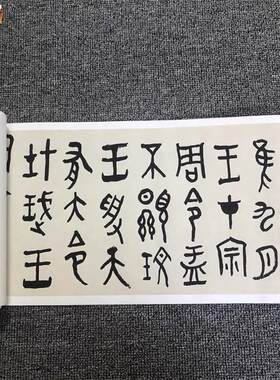 隹九月
王才宗
周令盂
不顯玟
王受天
有大令
在珷王